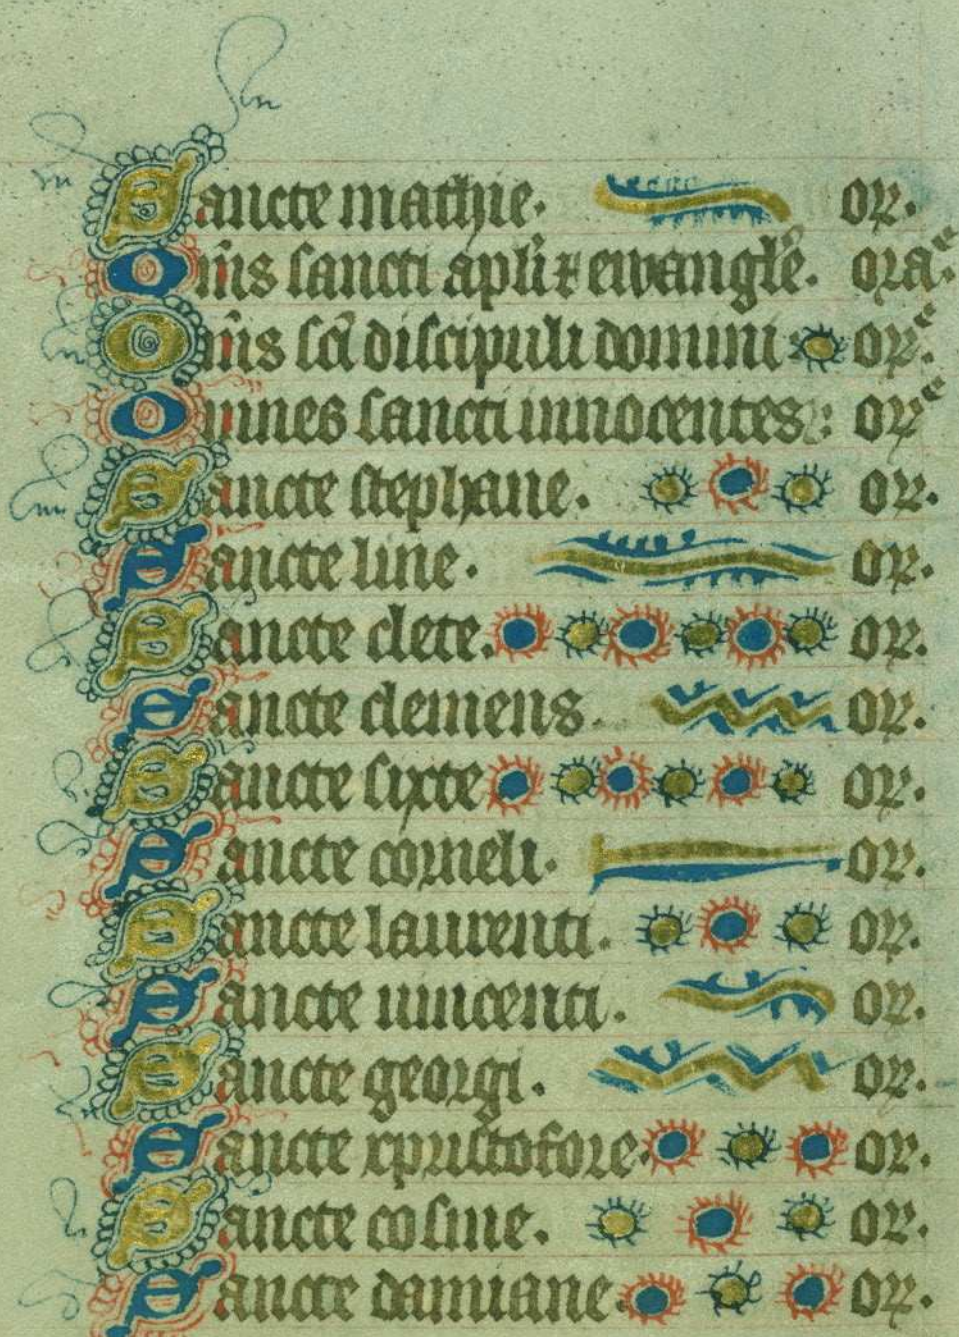 Sancte mathie. or.
Om̄s sancti apl̄i ⁊ ewangl̄e. orae.
Om̄s sc̄i discipuli domini ore.
Omnes sancti innocentes: ore
Sancte stephane. or.
Sancte line. or.
Sancte clete. or.
Sancte clemens. or.
Sancte sixte or.
Sancte corneli. or.
Sancte laurenti. or.
Sancte uincenti. or.
Sancte georgi. or.
Sancte xpristofore. or.
Sancte cosme. or.
Sancte damiane. or.